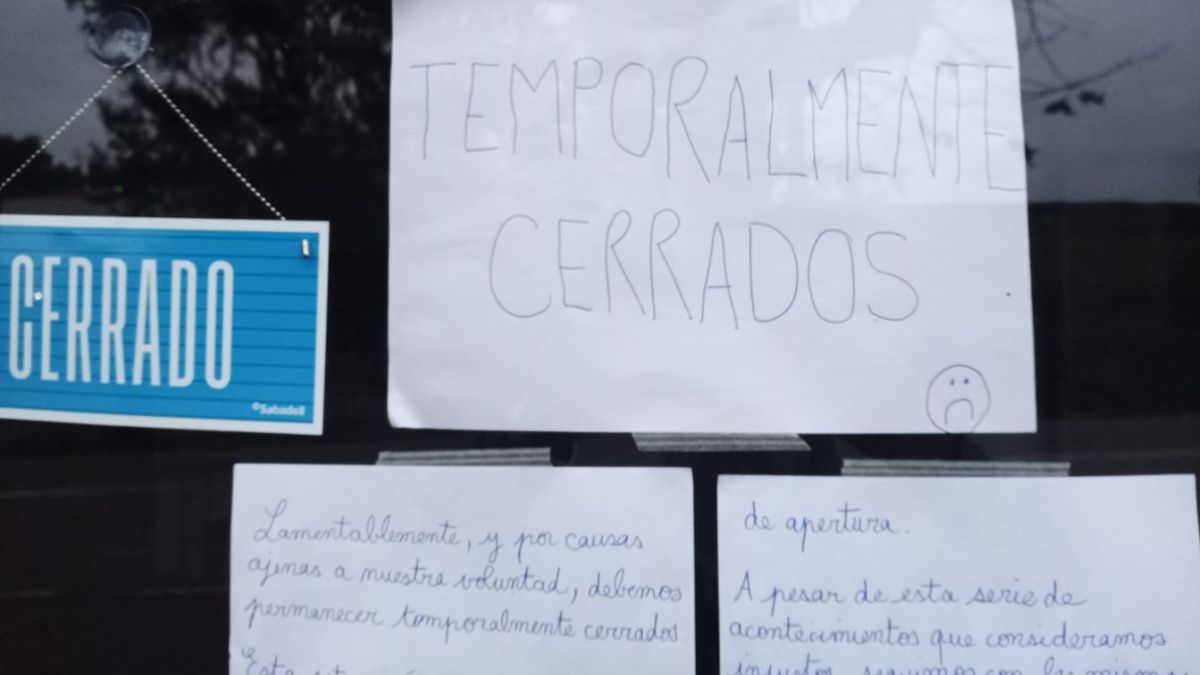 TEMPORALMENTE
CERRADOS
CERRADO
Sabadell
Lamentablemente, y por causas
ajenas a nuestra voluntad, debemos
permanecer temporalmente cerrados.
Esta
de apertura.
A pesar de esta serie de
acontecimientos que consideramos
injustos, seguimos con las mismas